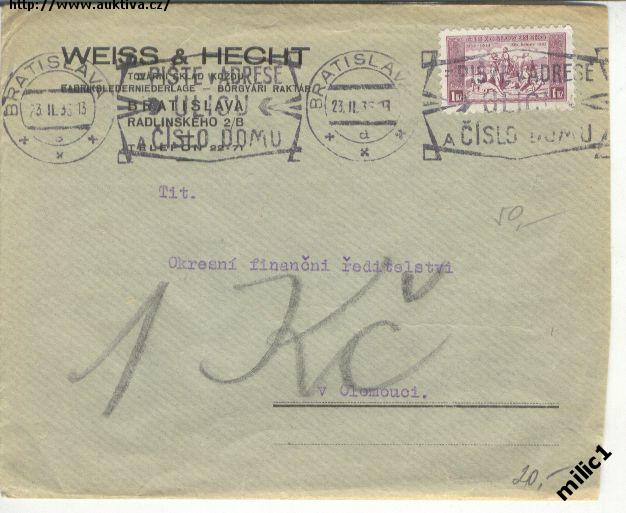 http://www.auktiva.cz/
WEISS & HECHT
TOVÁRNÍ SKLAD KOŽÍ
FABRIKSLEDERNIEDERLAGE – BŐRGYÁRI RAKTÁR
BRATISLAVA
RADLINSKÉHO 2/B
TELEFON 22-71
BRATISLAVA
23. II. 13
PIŠTE V ADRESE
A ČÍSLO DOMU
BRATISLAVA
23. II. 13
PIŠTE V ADRESE
ULICI
A ČÍSLO DOMU
1 Kč
1 Kč
Tit.
50,—
Okresní finanční ředitelství
1 Kč
v Olomouci.
20,—
milic1